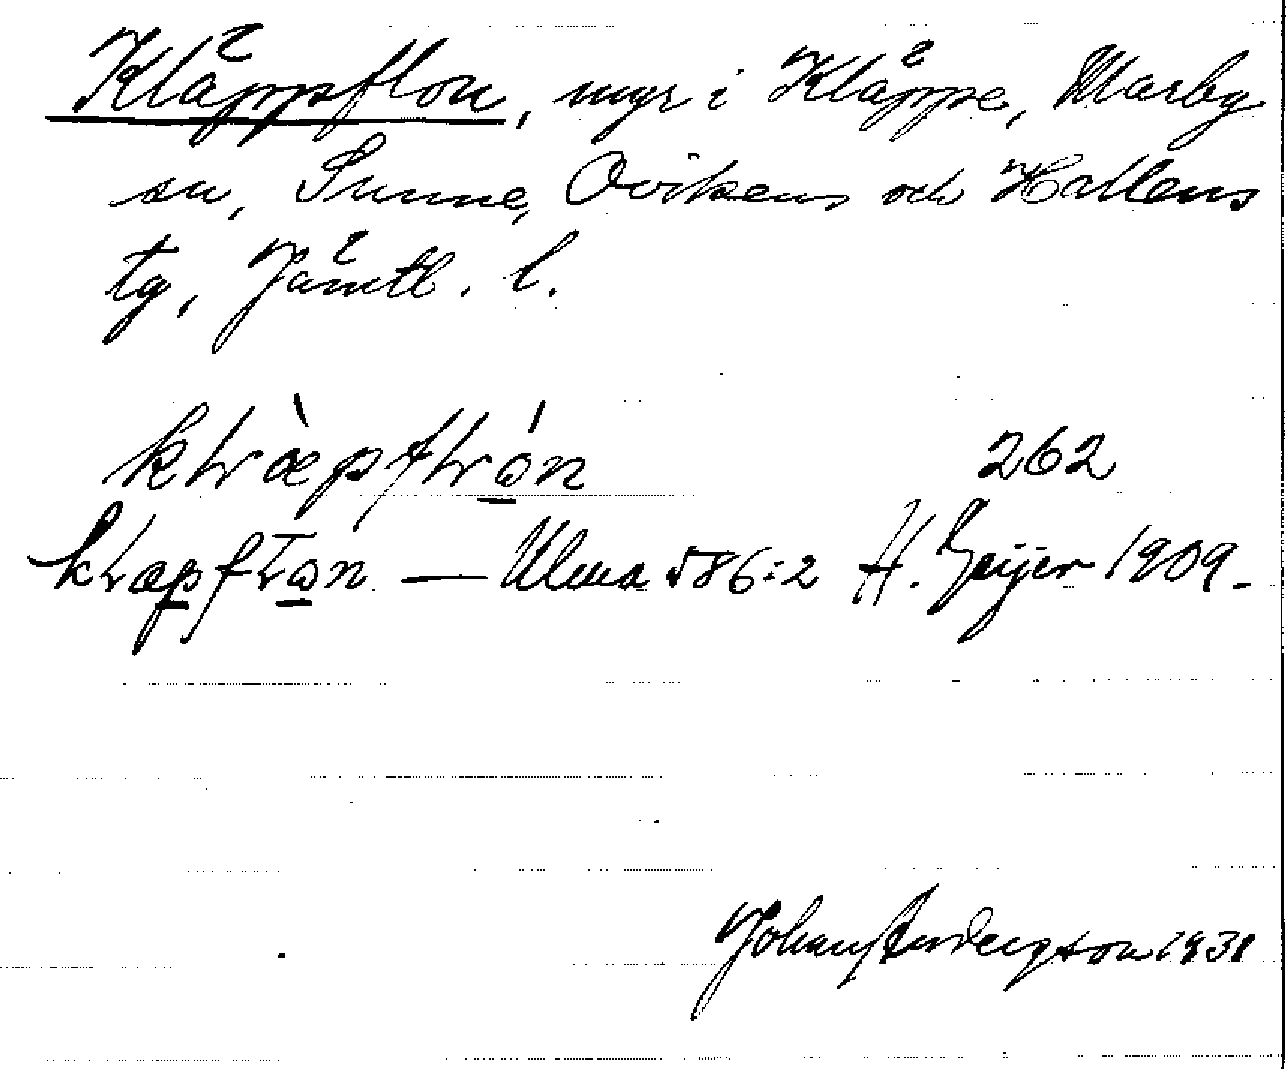 Kläppflon, myr i Kläppe, Marby
sn, Sunne, Ovikens och Hallens
tg, Jämtl. l.
262
Ulma 586:2 H. Geijer 1909.
Johan Anderson 1931